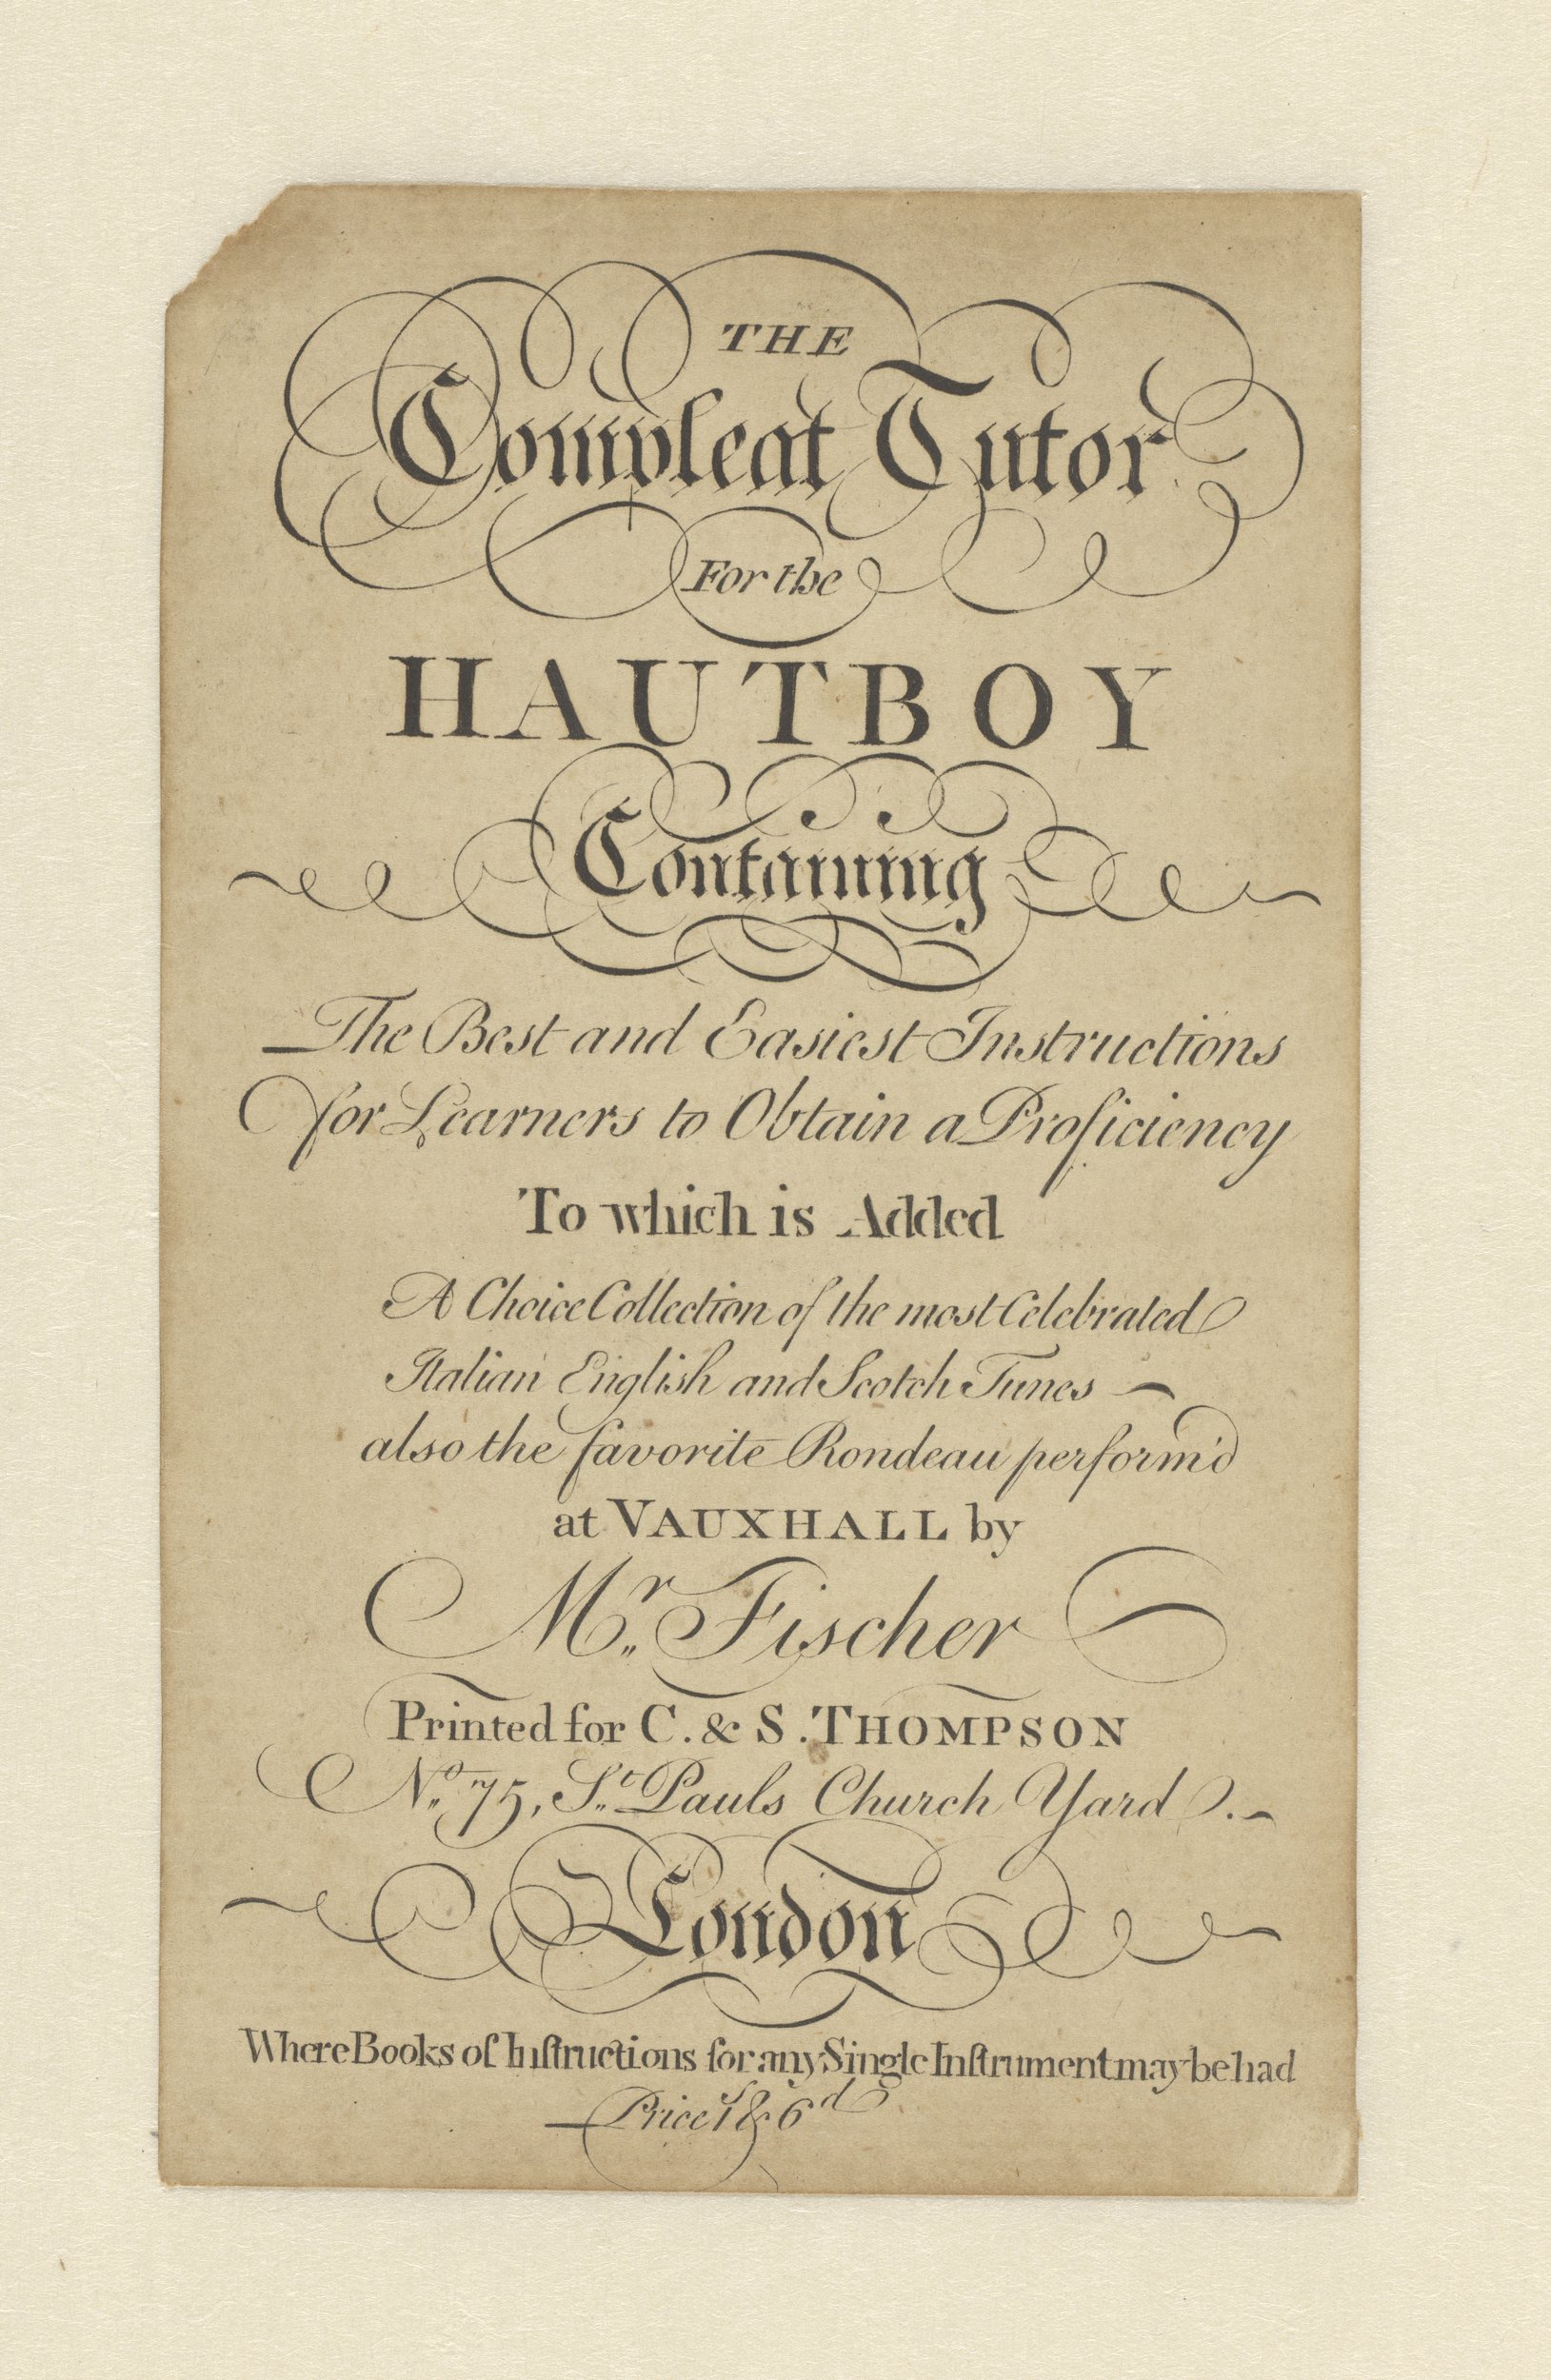 THE
Compleat Tutor
For the
HAUTBOY
Containing
The Best and Easiest Instructions
for Learners to Obtain a Proficiency
To which is Added
A Choice Collection of the most Celebrated
Italian English and Scotch Tunes
also the favorite Rondeau perform'd
at VAUXHALL by
Mr. Fischer
Printed for C. & S. THOMPSON
No. 75, St. Pauls Church Yard.
London
Where Books of Inſtructions for any Single Inſtrument may be had
Price 1s & 6d